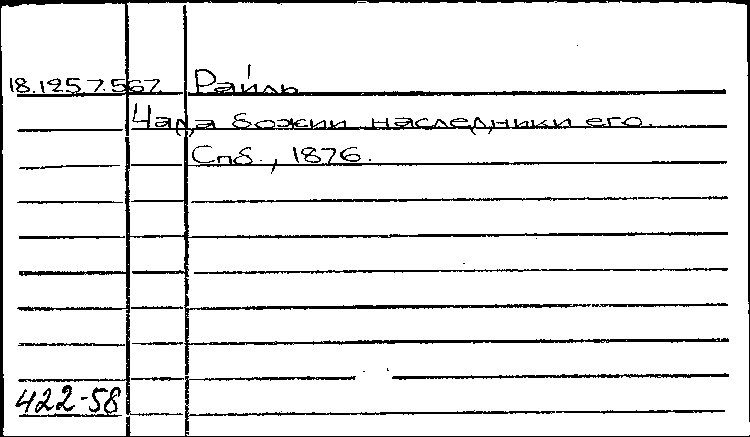 18.125.7.567. Райль
Чада божии наследники его.
Спб., 1876.
422-58